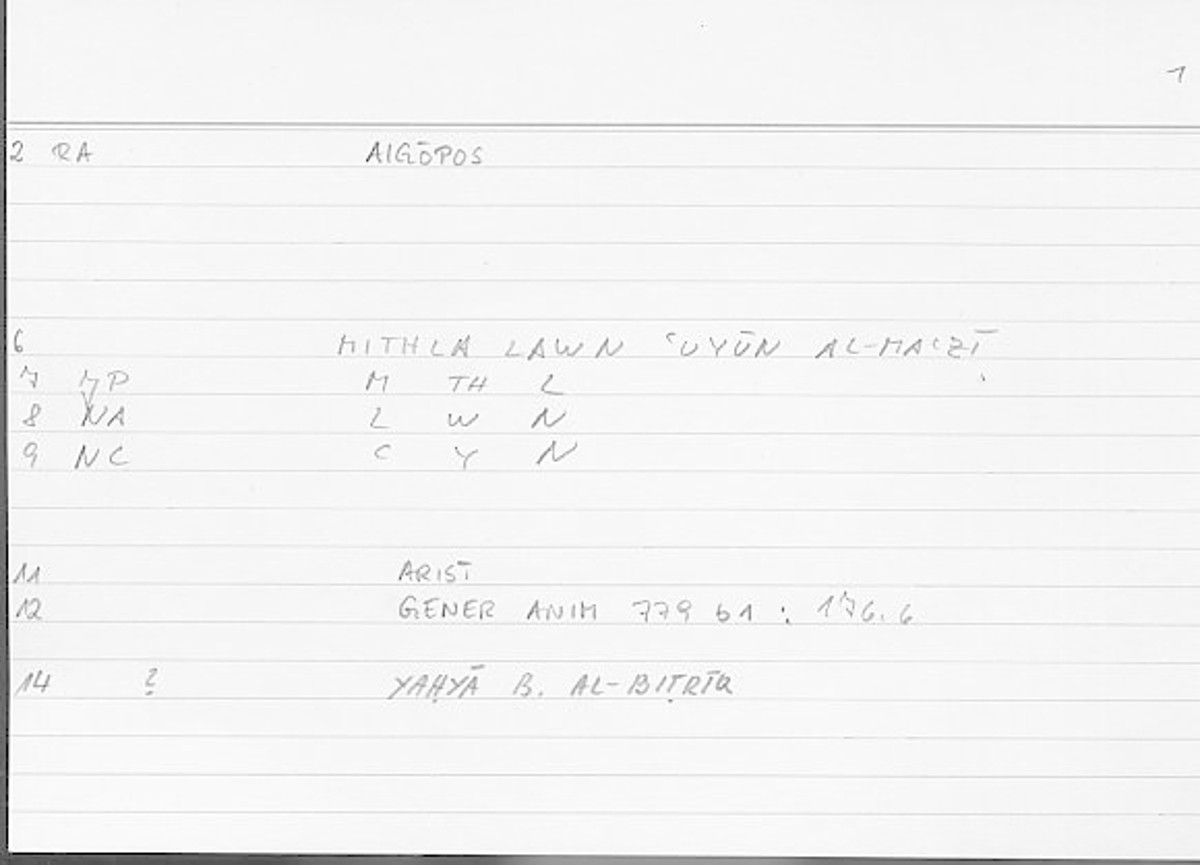 1
2 RA AIGŌPOS
6 MITHLA LAWN ʿUYŪN AL-MAʿZĪ
7 P M TH L
8 NA L W N
9 NC C Y N
11 ARIST
12 GENER ANIM 779 b1 : 176.6
14 ? YAḤYĀ B. AL-BIṬRĪQ